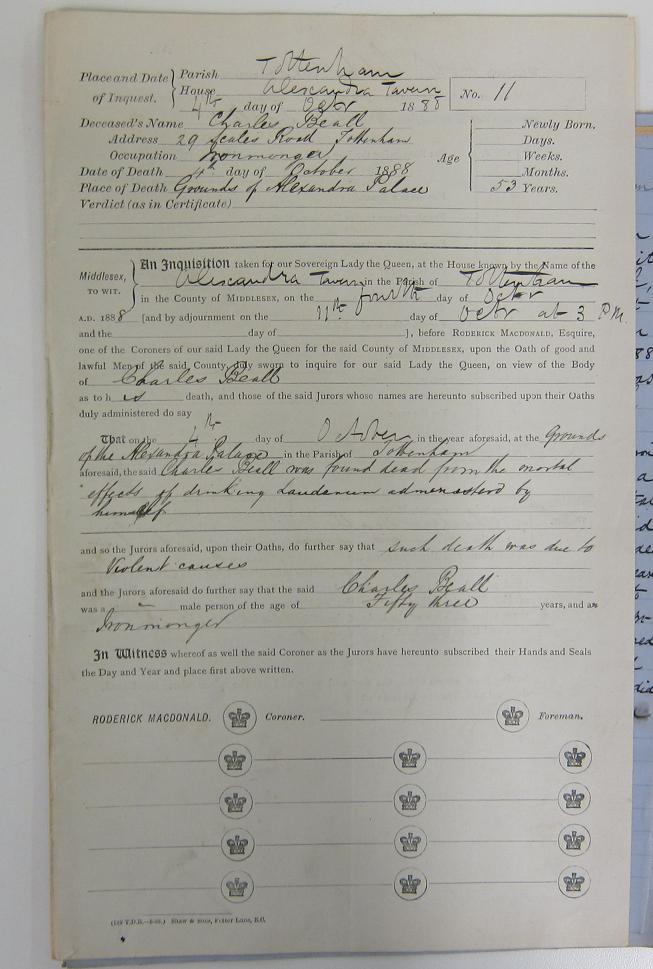 Place and Date of Inquest. Parish Tottenham
House Alexandra Tavern
4th day of Octr 1888
No. 11
Deceased's Name Charles Beall
Address 29 Scales Road Tottenham
Occupation Ironmonger
Date of Death 4th day of October 1888
Place of Death Grounds of Alexandra Palace
Verdict (as in Certificate)
Age
Newly Born.
Days.
Weeks.
Months.
53 Years.
Middlesex, TO WIT.
An Inquisition taken for our Sovereign Lady the Queen, at the House known by the Name of the
Alexandra Tavern in the Parish of Tottenham
in the County of MIDDLESEX, on the fourth day of Octr
A.D. 1888 [and by adjournment on the 11th day of Octr at 3 P.M.
and the day of ], before RODERICK MACDONALD, Esquire,
one of the Coroners of our said Lady the Queen for the said County of MIDDLESEX, upon the Oath of good and
lawful Men of the said County, duly sworn to inquire for our said Lady the Queen, on view of the Body
of Charles Beall
as to his death, and those of the said Jurors whose names are hereunto subscribed upon their Oaths
duly administered do say
That on the 4th day of October in the year aforesaid, at the Grounds
of the Alexandra Palace in the Parish of Tottenham
aforesaid, the said Charles Beall was found dead from the mortal
effects of drinking Laudanum administered by
himself
and so the Jurors aforesaid, upon their Oaths, do further say that such death was due to
Violent causes
and the Jurors aforesaid do further say that the said Charles Beall
was a male person of the age of Fifty three years, and an
Ironmonger
In Witness whereof as well the said Coroner as the Jurors have hereunto subscribed their Hands and Seals
the Day and Year and place first above written.
RODERICK MACDONALD. Coroner. Foreman.
Shaw & Sons, Fetter Lane, E.C.